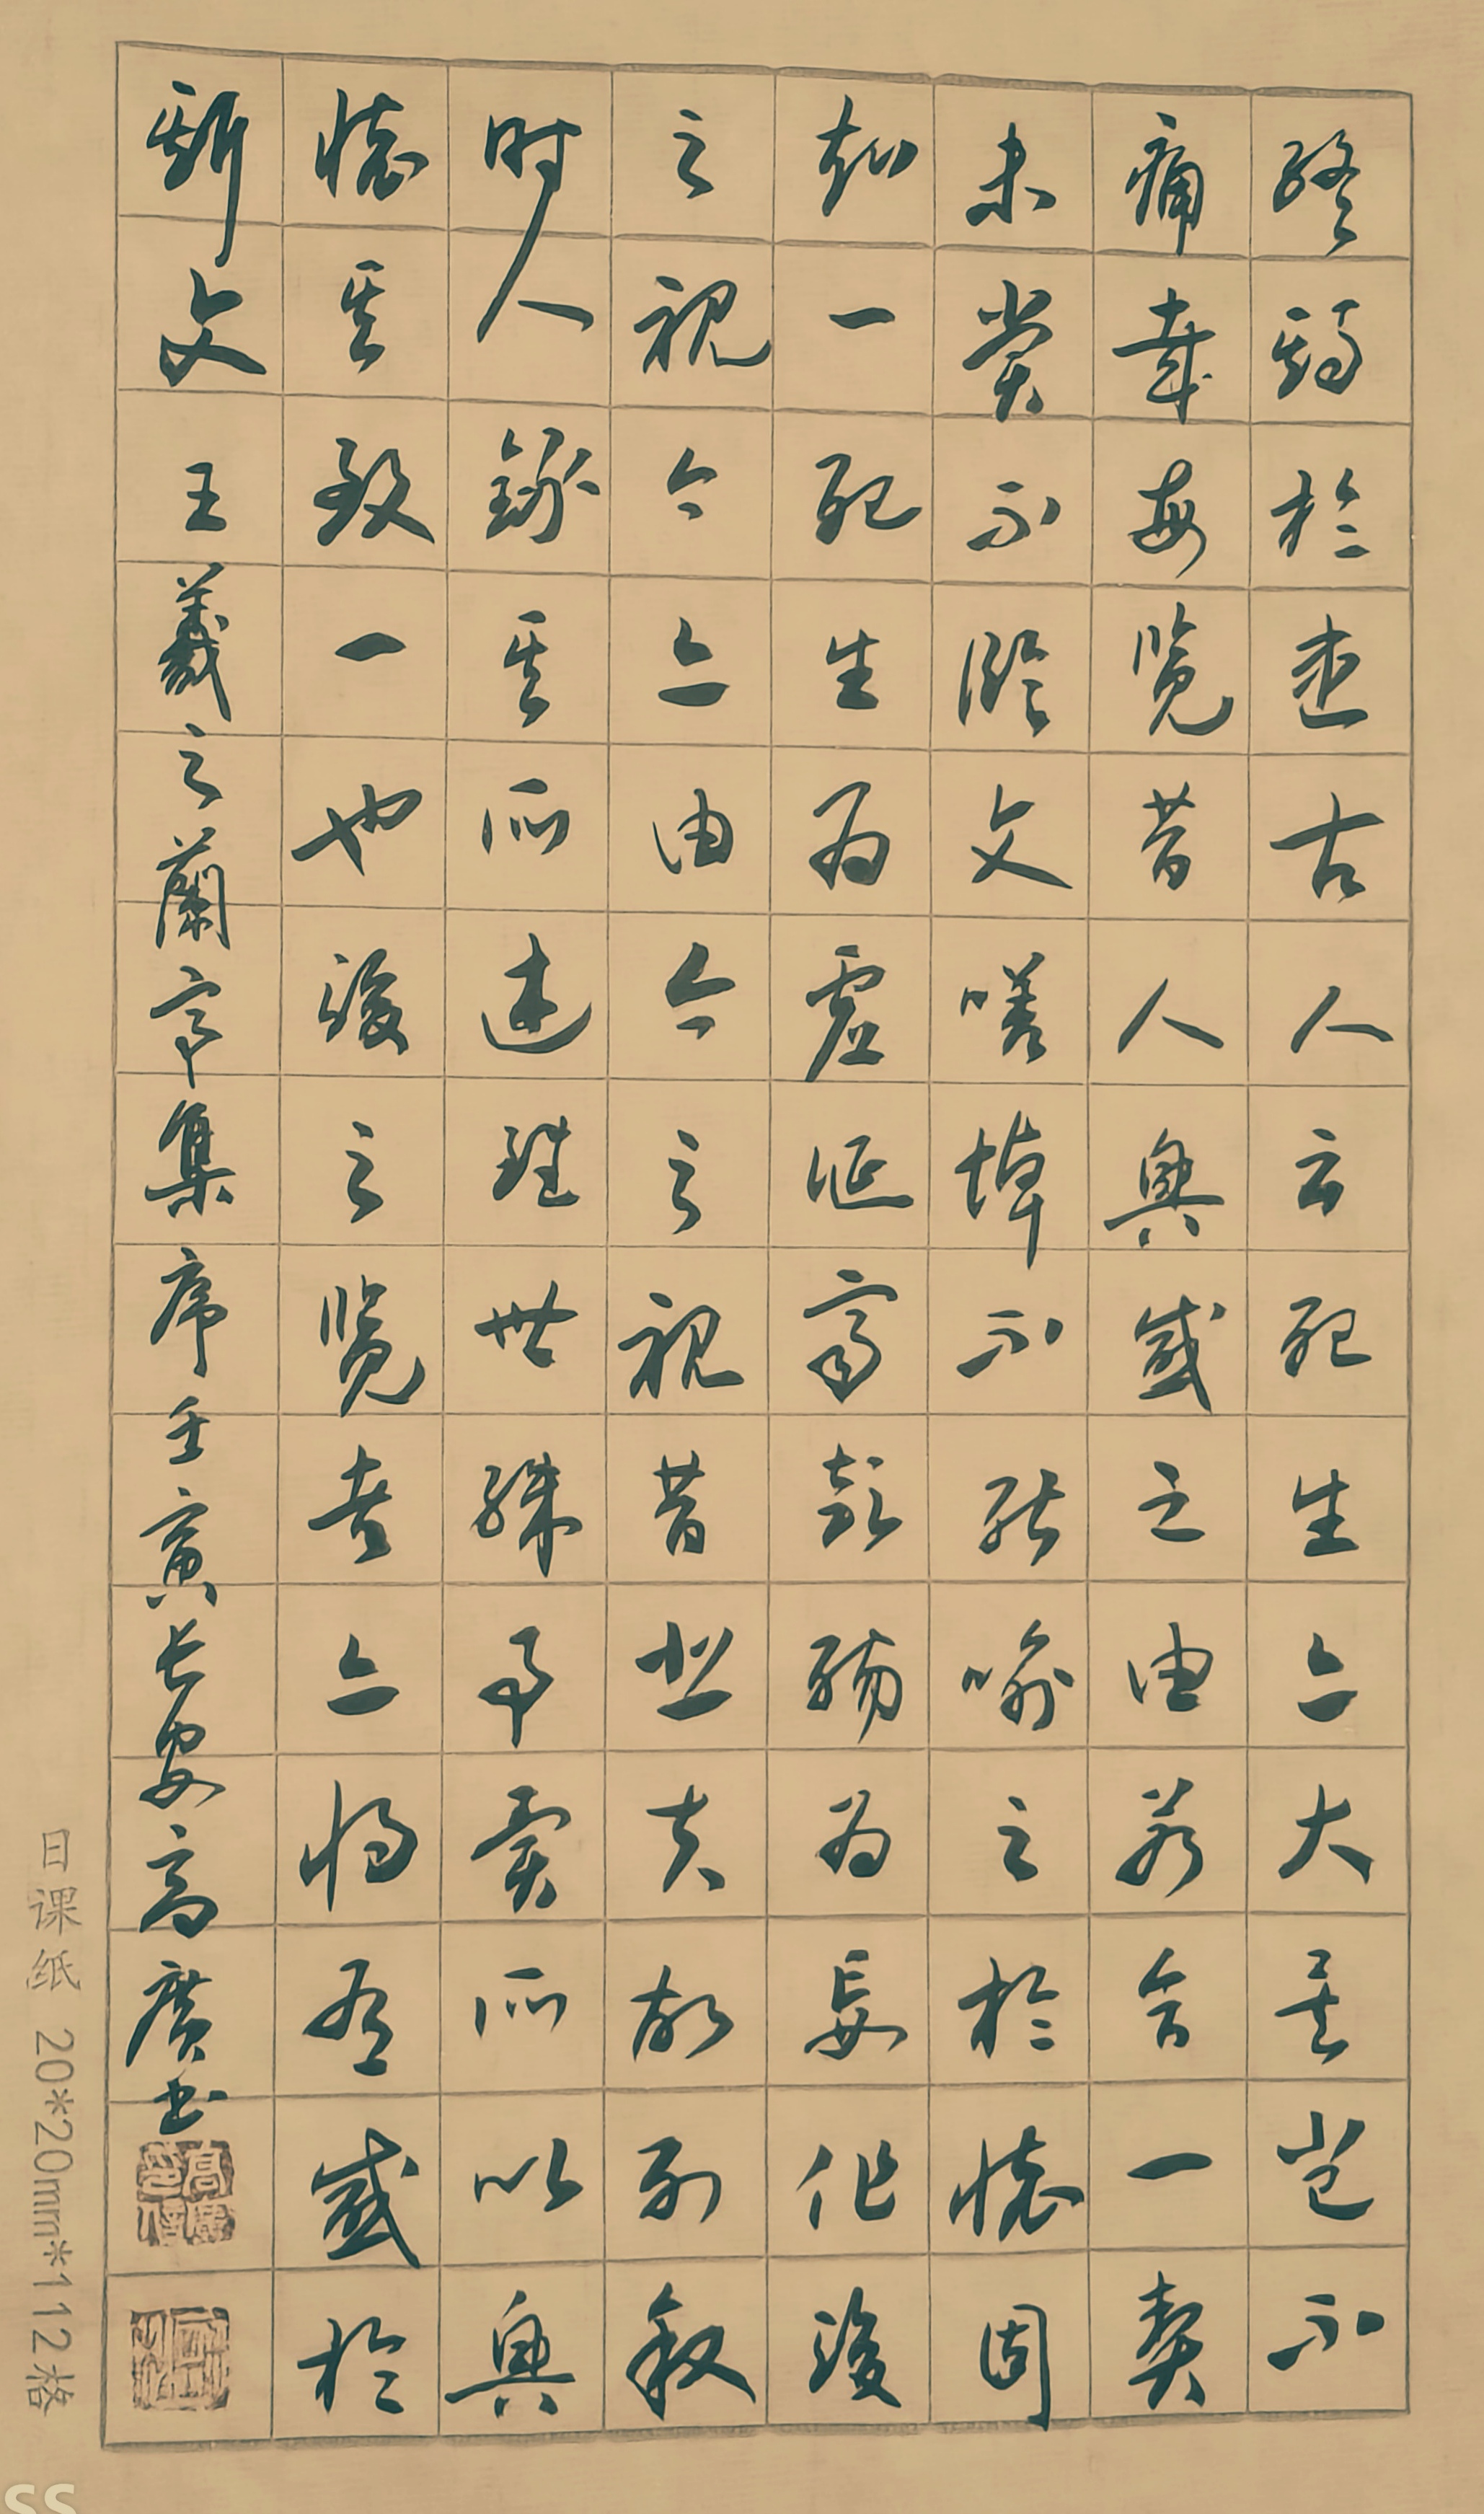 終期於盡古人云死生亦大矣豈不
痛哉每覽昔人興感之由若合一契
未嘗不臨文嗟悼不能喻之於懷固
知一死生為虛誕齊彭殤為妄作後
之視今亦由今之視昔悲夫故列敘
时人錄其所述雖世殊事異所以興
懷其致一也後之覽者亦將有感於
斯文 王羲之蘭亭集序壬寅长安高廣书
日课纸 20*20mm*112格
SS